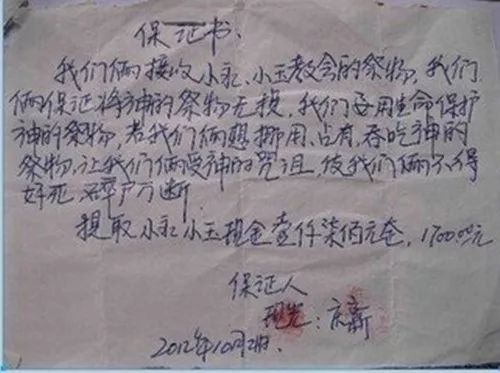 保证书
我们俩接收小永、小玉教会的祭物,我们
俩保证将神的祭物无损,我们要用生命保护
神的祭物,若我们俩想挪用、占有、吞吃神的
祭物,让我们俩受神的咒诅,使我们俩不得
好死,碎尸万断
提取小永小玉现金壹仟柒佰元整,1700.00元
保证人
庆新
2012年10月2日.